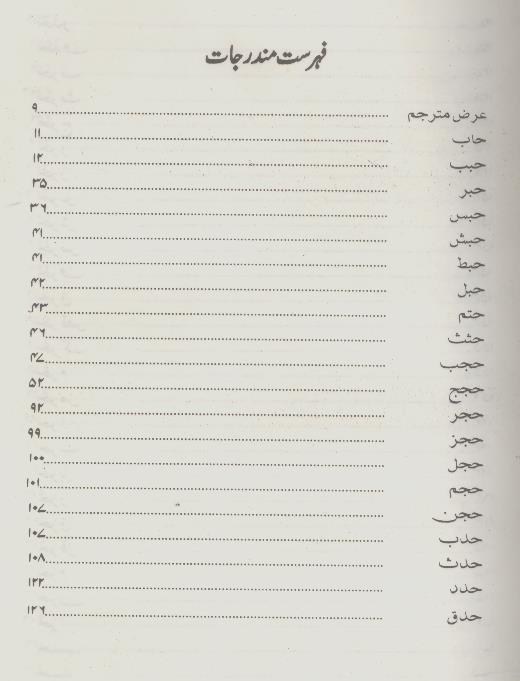 فہرست مندرجات
عرض مترجم ۹
حاب ۱۱
حبب ۱۲
حبر ۳۵
حبس ۳۶
حبش ۴۱
حبط ۴۱
حبل ۴۲
حتم ۴۳
حثث ۴۶
حجب ۴۷
حجج ۵۲
حجر ۹۲
حجز ۹۹
حجل ۱۰۰
حجم ۱۰۱
حجن ۱۰۷
حدب ۱۰۷
حدث ۱۰۸
حدد ۱۲۲
حدق ۱۲۶